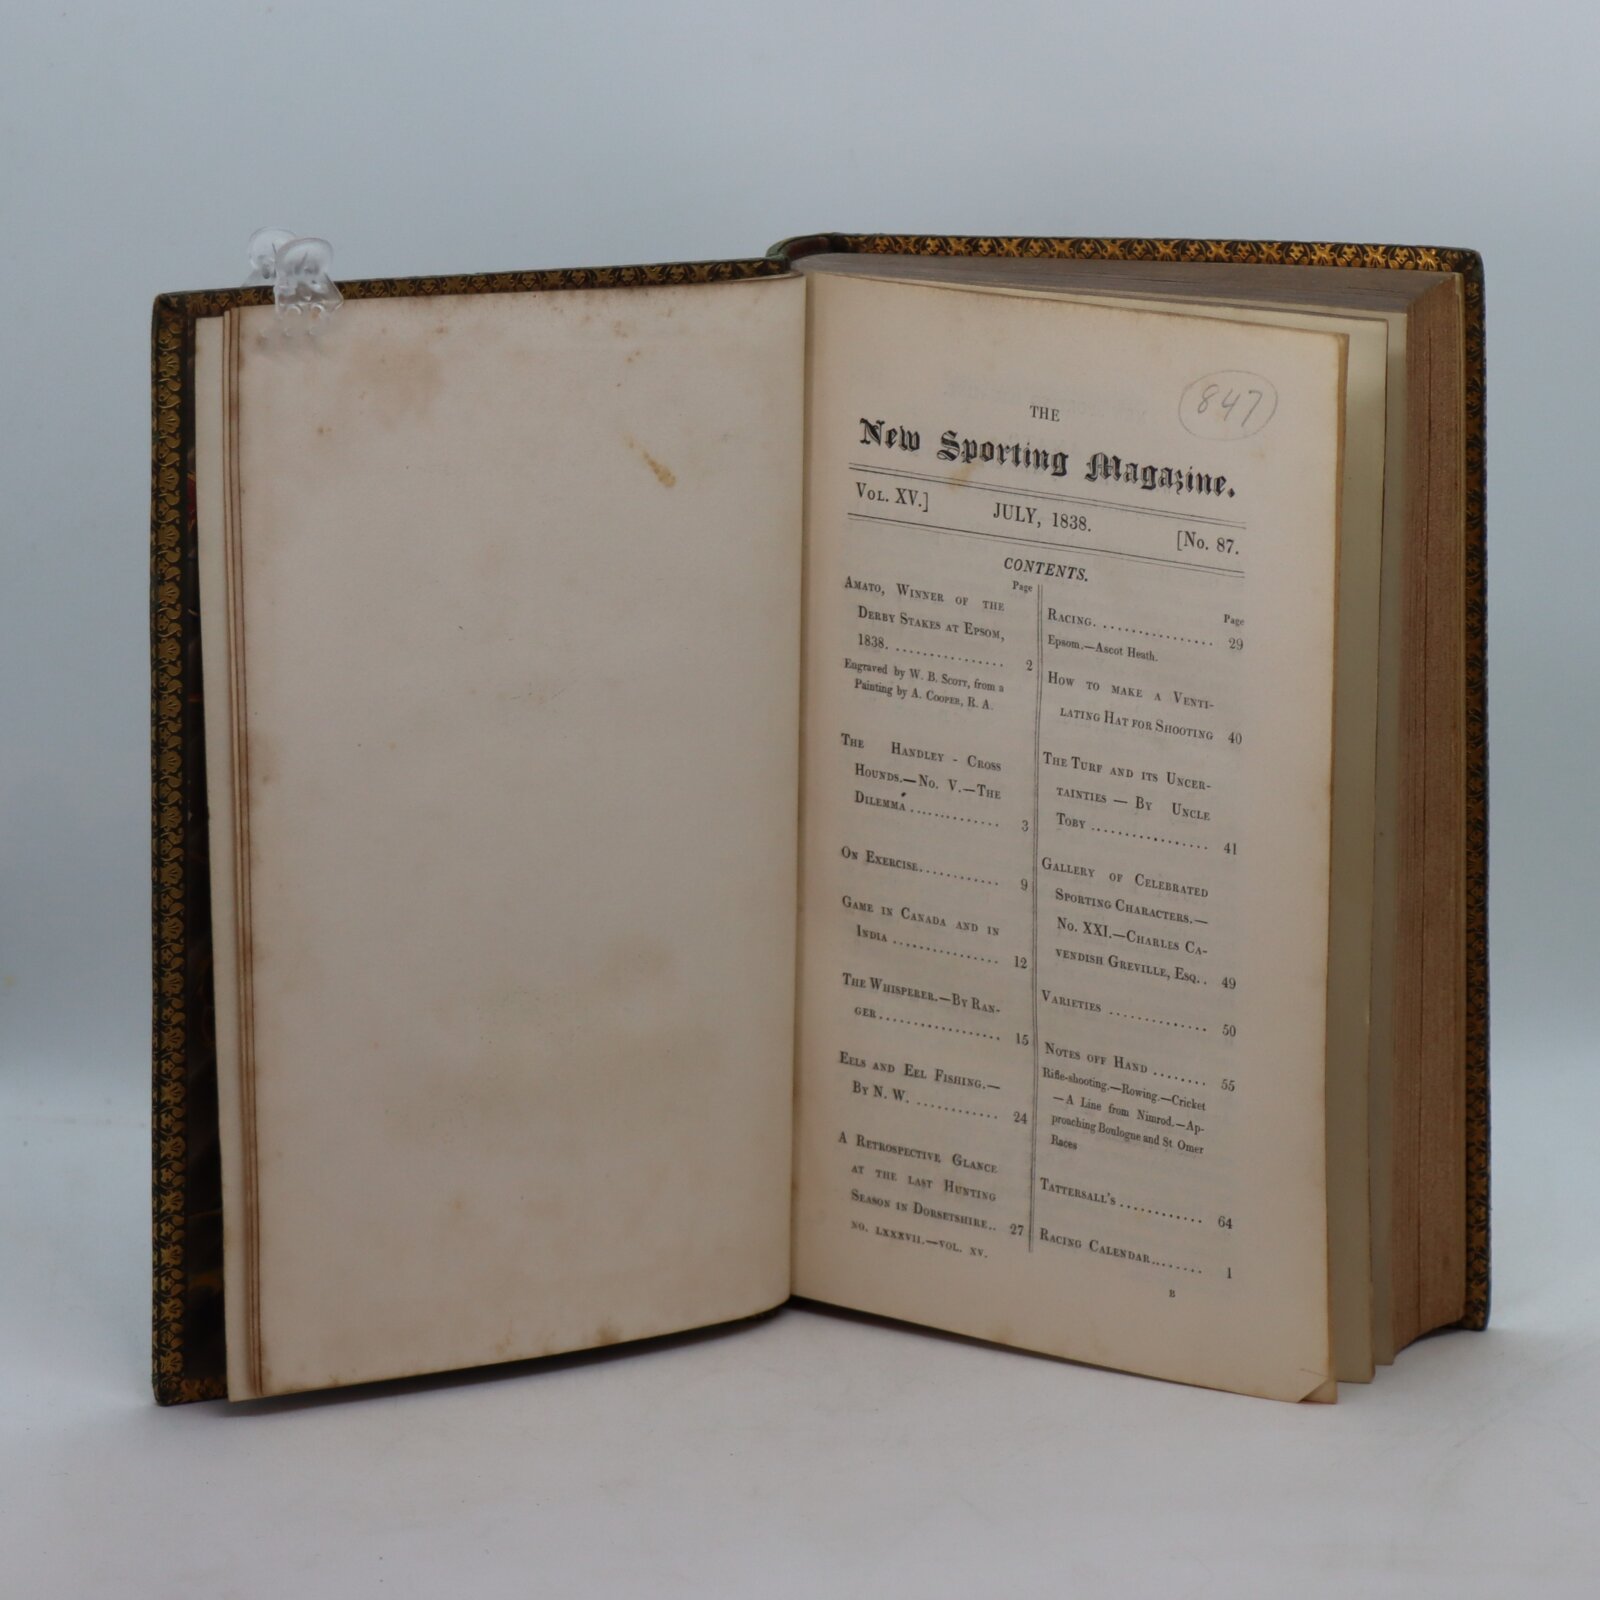 847
THE
New Sporting Magazine.
VOL. XV.] JULY, 1838. [No. 87.
CONTENTS.
Page
AMATO, WINNER OF THE
DERBY STAKES AT EPSOM,
1838. ................ 2
Engraved by W. B. SCOTT, from a
Painting by A. COOPER, R. A.
THE HANDLEY - CROSS
HOUNDS.—No. V.—THE
DILEMMA ............. 3
ON EXERCISE............ 9
GAME IN CANADA AND IN
INDIA ................ 12
THE WHISPERER.—BY RAN-
GER.................. 15
EELS AND EEL FISHING.—
BY N. W. ............ 24
A RETROSPECTIVE GLANCE
AT THE LAST HUNTING
SEASON IN DORSETSHIRE.. 27
NO. LXXXVII.—VOL. XV.
Page
RACING................. 29
Epsom.—Ascot Heath.
HOW TO MAKE A VENTI-
LATING HAT FOR SHOOTING 40
THE TURF AND ITS UNCER-
TAINTIES — BY UNCLE
TOBY ................. 41
GALLERY OF CELEBRATED
SPORTING CHARACTERS.—
No. XXI.—CHARLES CA-
VENDISH GREVILLE, ESQ.. 49
VARIETIES ............. 50
NOTES OFF HAND ........ 55
Rifle-shooting.—Rowing.—Cricket
—A Line from Nimrod.—Ap-
proaching Boulogne and St Omer
Races
TATTERSALL'S ............ 64
RACING CALENDAR........ 1
B